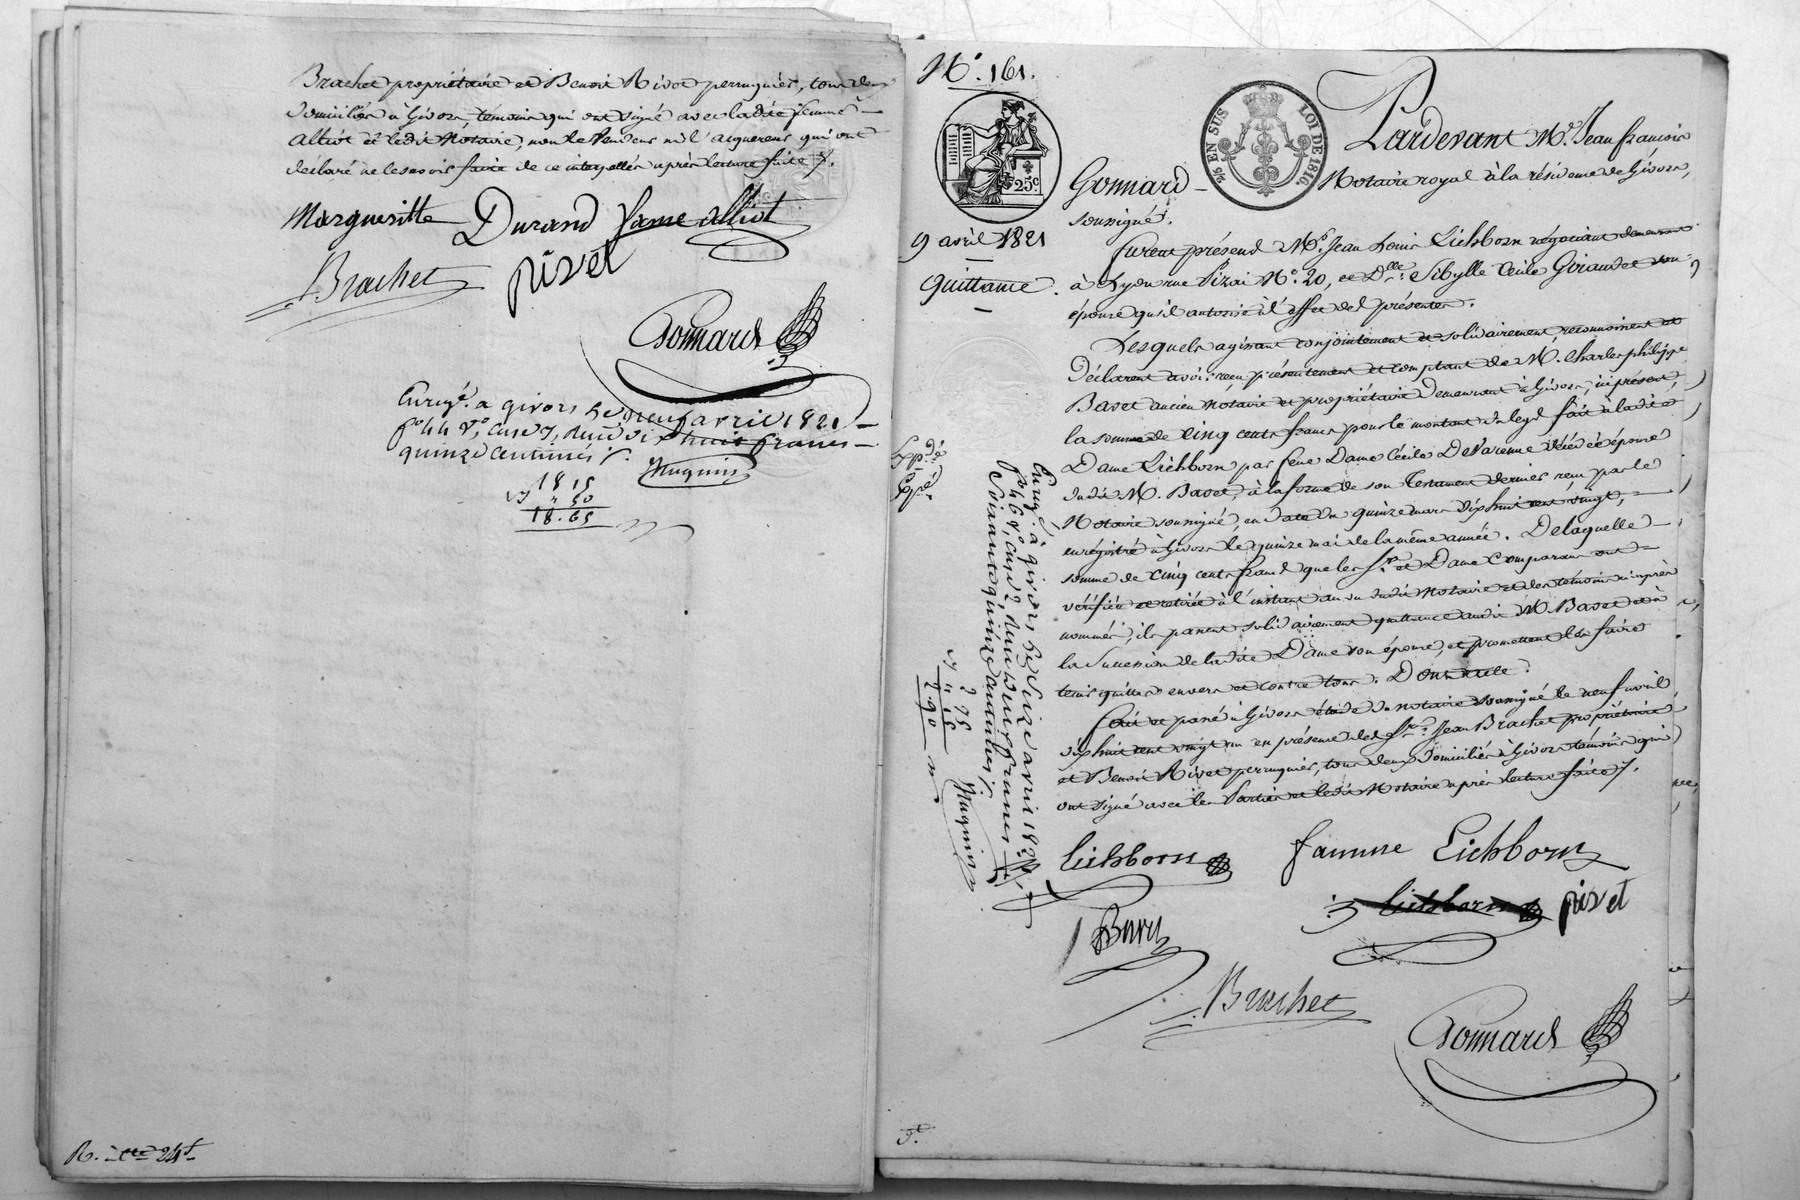 Brachet propriétaire et Benoit Rivet perruquier, tous deux
domiciliés à Givors, témoins qui ont signé avec ladite femme
Alliot et ledit Notaire, non le Vendeur ni l'acquereur qui ont
déclaré ne le savoir faire de ce interpellés après lecture faite /.
Margueritte Durand fame alliot
Brachet rivet
Gonnard
Enregé. a givors le neuf avril 1821
fo 44 Vo, case 7, reçu dix huit francs
quinze centimes /.
18 15
50
18.65
R. 24f
No. 161.
25c
25 EN SUS LOI DE 1816.
9 avril 1821
Quittance.
Pardevant Me. Jean françois
Gonnard Notaire royal à la résidence de Givors,
soussigné.
furent présens Mr. Jean Louis Eichborn négociant demeurant
à Lyon rue Pizai No. 20, et Dlle. Sibylle Cécile Giraudet son
épouse qu'il autorise à l'effet des présentes.
Lesquels agissant conjointement et solidairement, reconnoissent et
déclarent avoir reçu présentement et comptant de M. Charles philippe
ancien notaire et propriétaire demeurant à Givors, ici présent,
la somme de cinq cents francs pour le montant du legs fait à ladite
Dame Eichborn par feue Dame Cécile Devarenne épouse
dudit M. à la forme de son Testament dernier reçu par le
Notaire soussigné, en date du quinze mars dix huit cent vingt,
enregistré à Givors le quinze mai de la même année. De laquelle
somme de cinq cents francs que les Sr. et Dame Comparans ont
vérifiée et retirée à l'instant au vu dudit Notaire et des témoins ci après
nommés, ils passent solidairement quittance audit M. et à
la Succession de ladite Dame son épouse, et promettent l'en faire
tenir quitte envers et contre tous. Dont acte.
fait et passé à Givors étude du notaire soussigné le neuf avril
dix huit cent vingt un en présence des Srs. Jean Brachet propriétaire
et Benoit Rivet perruquier, tous deux domiciliés à Givors témoins qui
ont signé avec les Parties et ledit Notaire après lecture faite /.
Eichborn femme Eichborn
Eichborn rivet
Brachet
Gonnard
Expé
Enregé. à givors le seize avril 1821
fo 46 Vo, case 2, reçu deux francs
soixante quinze centimes /.
2 75
15
2.90